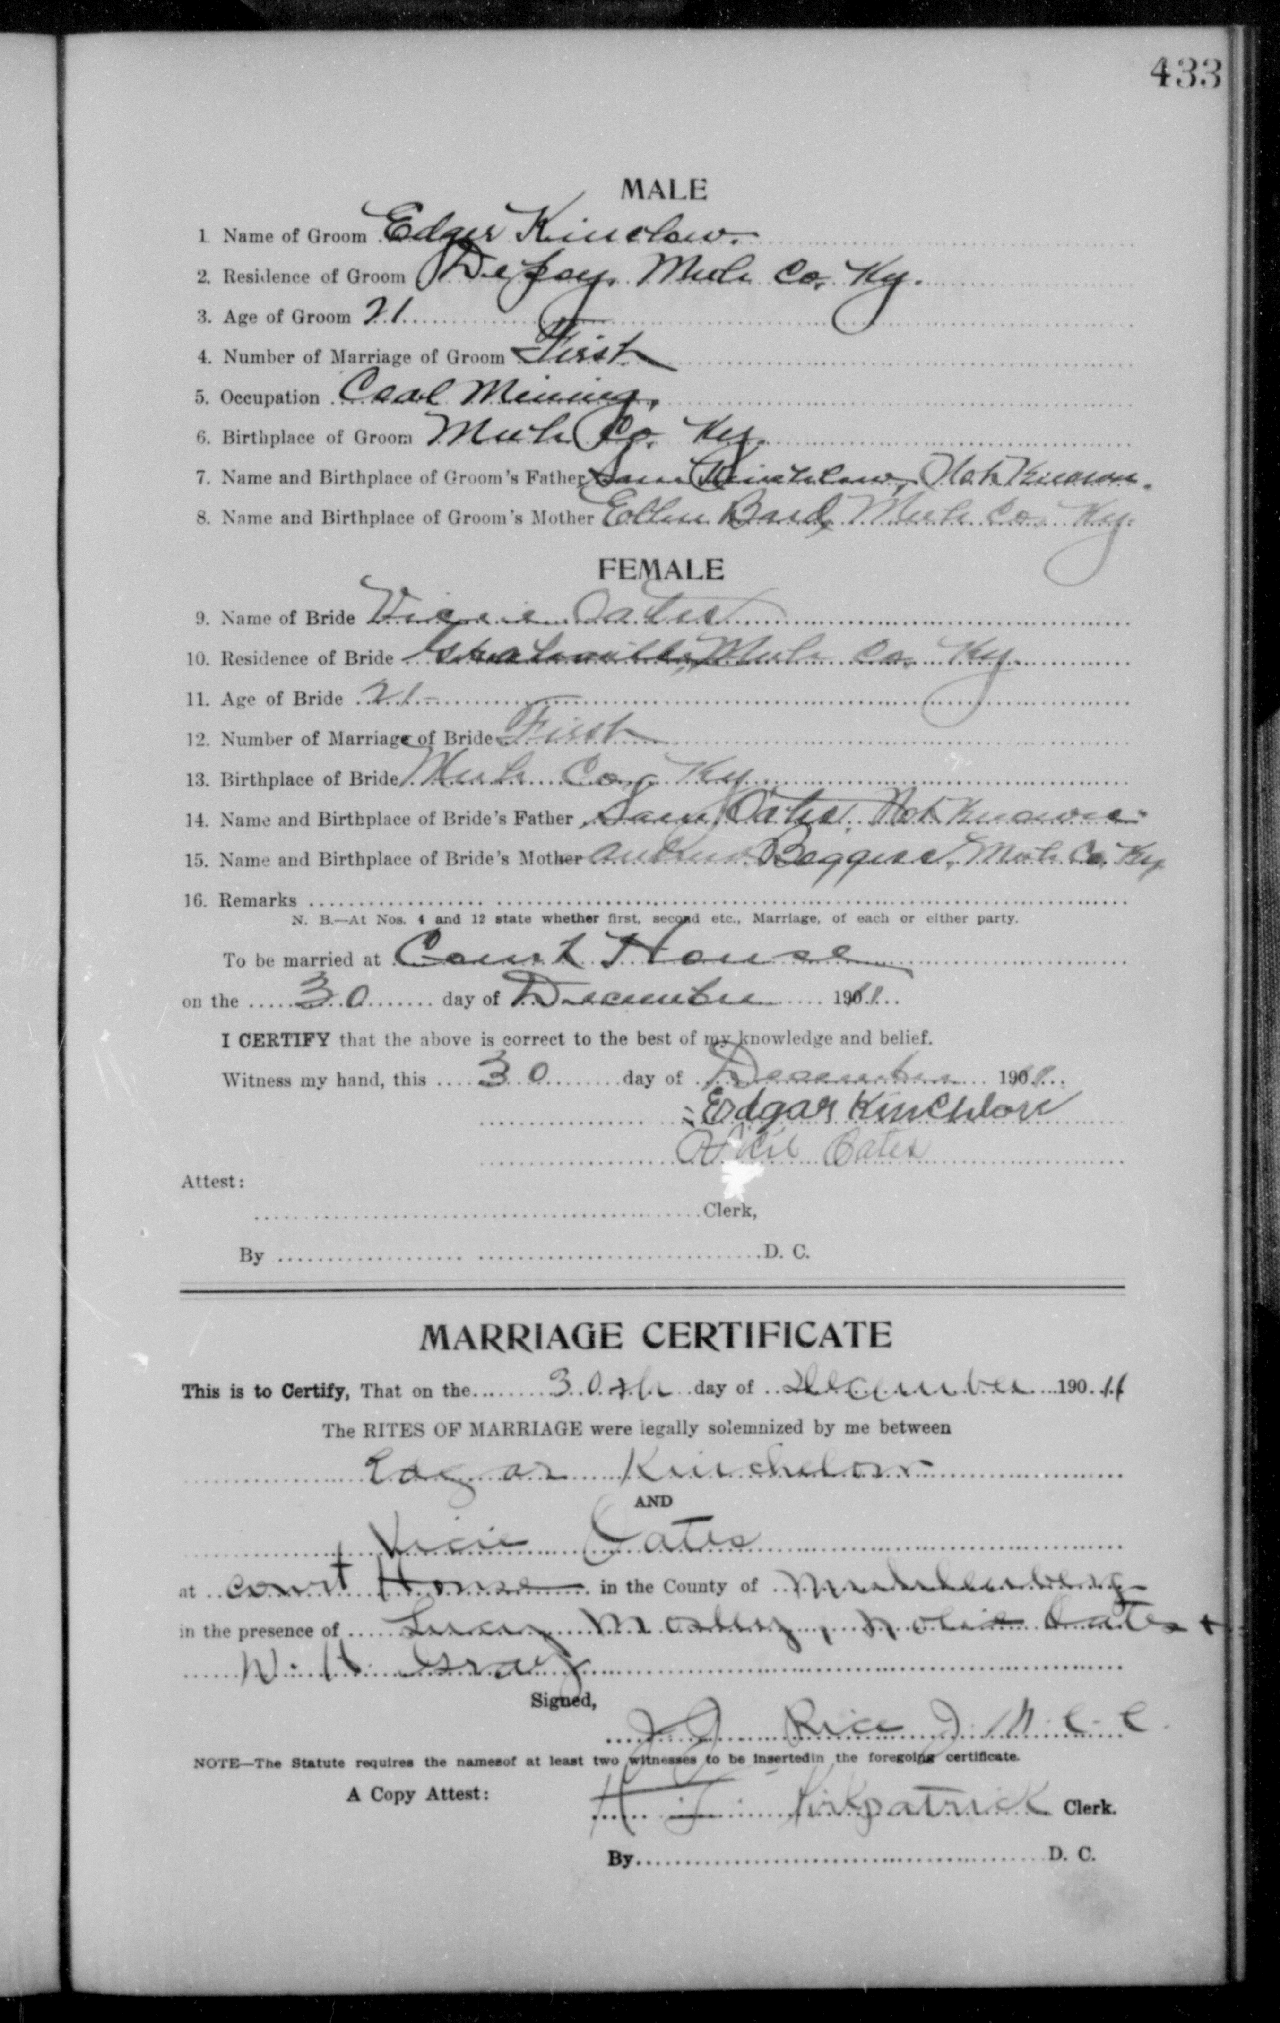 433
MALE
1 Name of Groom Edger Kinclow.
2. Residence of Groom Depoy. Muh Co. Ky.
3. Age of Groom 21
4. Number of Marriage of Groom First
5. Occupation Coal Mining.
6. Birthplace of Groom Muh Co. Ky.
7. Name and Birthplace of Groom's Father Sam Kinchlow, Not Known.
8. Name and Birthplace of Groom's Mother Ellen Bard, Muh Co. Ky.
FEMALE
9. Name of Bride Vicie Oates
10. Residence of Bride Muh Co. Ky.
11. Age of Bride 21-
12. Number of Marriage of Bride First
13. Birthplace of Bride Muh Co, Ky
14. Name and Birthplace of Bride's Father Sam Oates, Not Known
15. Name and Birthplace of Bride's Mother Muh Co. Ky
16. Remarks
N. B.—At Nos. 4 and 12 state whether first, second etc., Marriage, of each or either party.
To be married at Court House
on the 30 day of December 1911
I CERTIFY that the above is correct to the best of my knowledge and belief.
Witness my hand, this 30 day of December 1911
Edgar Kinchlow
Vicie Oates
Attest:
Clerk,
By D. C.
MARRIAGE CERTIFICATE
This is to Certify, That on the 30th day of December 190 11
The RITES OF MARRIAGE were legally solemnized by me between
Edgar Kinchelow
AND
Vicie Oates
at court House in the County of Muhlenberg
in the presence of Lucy Mosley, Oates +
W. H Gray
Signed,
J J Rice J. M. C. C.
NOTE—The Statute requires the namesof at least two witnesses to be insertedin the foregoing certificate.
A Copy Attest: Kirkpatrick Clerk.
By D. C.